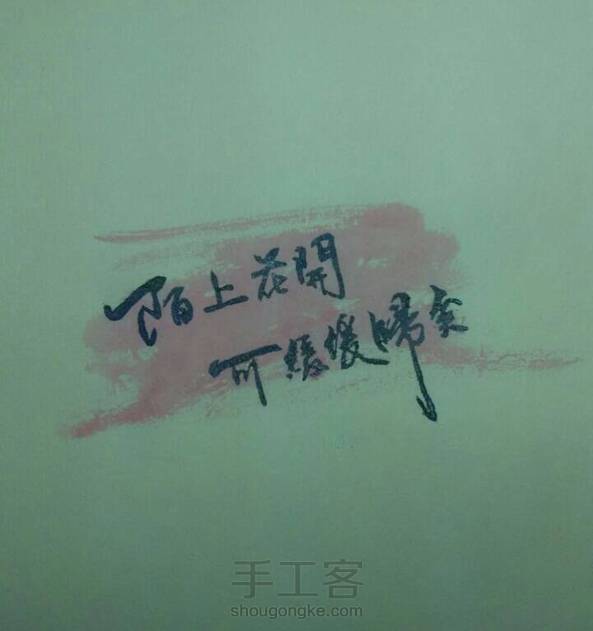 陌上花開
可緩緩歸矣
手工客
shougongke.com